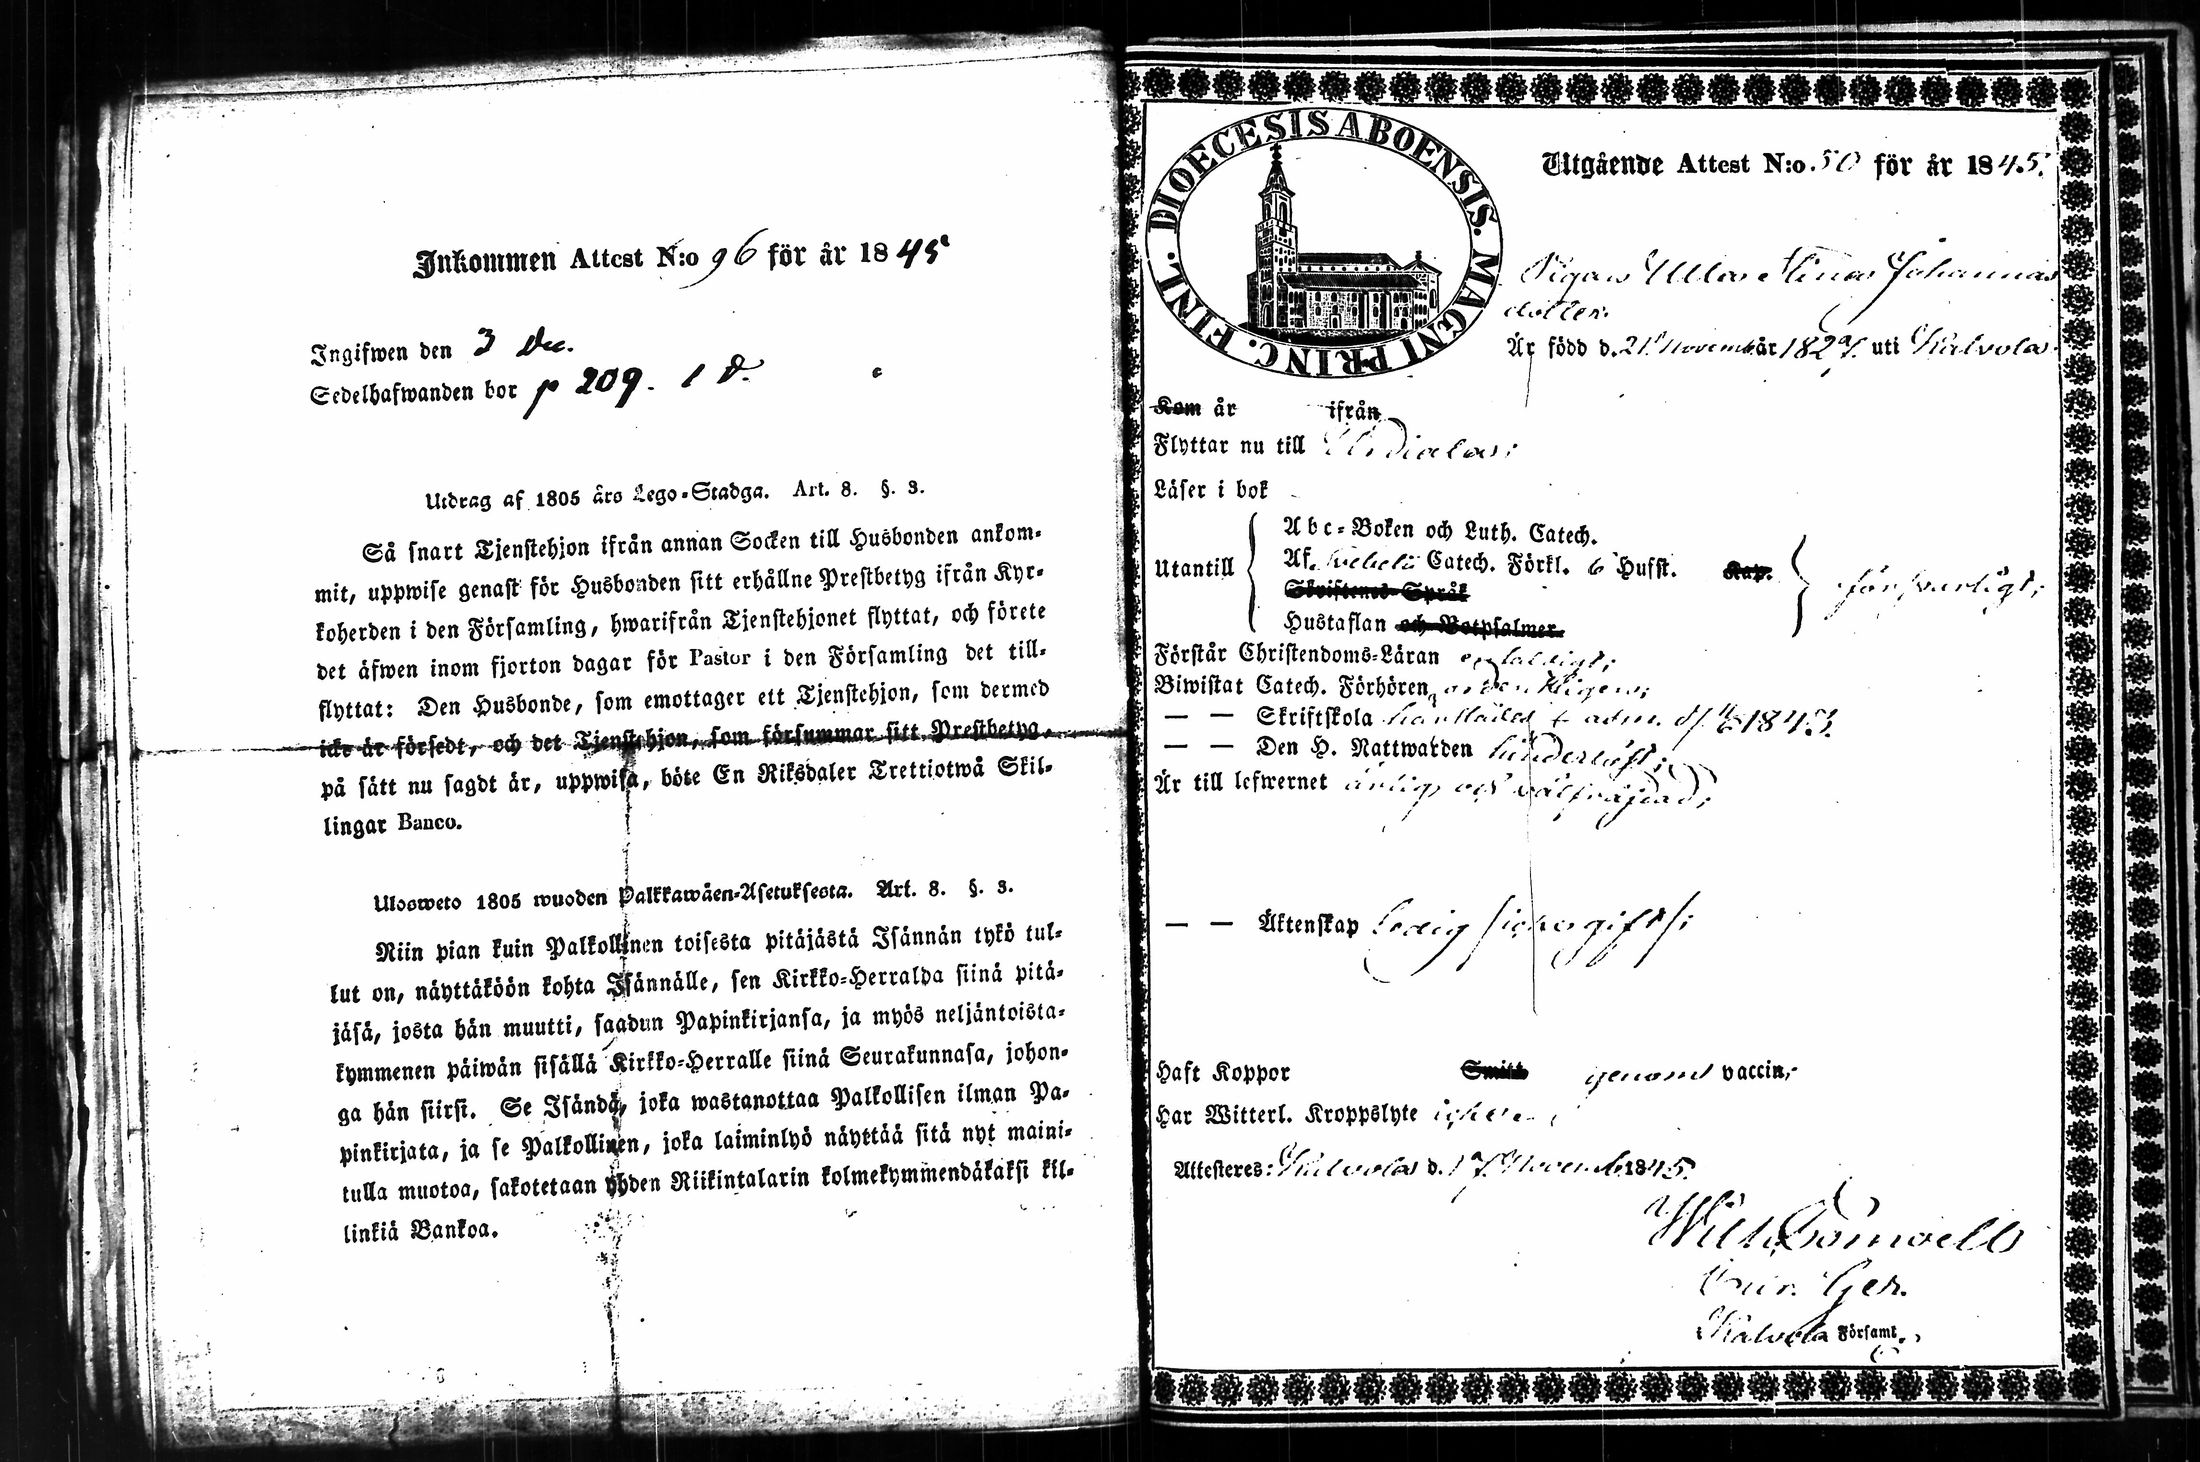 Inkommen Attest N:o 96 för år 1845
Ingifwen den 3 Dec.
Sedelhafwanden bor p 209. 1 d.
Utdrag af 1805 års Lego-Stadga. Art. 8. §. 3.
Så snart Tjenstehjon ifrån annan Socken till Husbonden ankom-
mit, uppwise genast för Husbonden sitt erhållne Prestbetyg ifrån Kyr-
koherden i den Församling, hwarifrån Tjenstehjonet flyttat, och förete
det äfwen inom fjorton dagar för Pastor i den Församling det till-
flyttat: Den Husbonde, som emottager ett Tjenstehjon, som dermed
icke är försedt, och det Tjenstehjon, som försummar sitt Prestbetyg,
på sätt nu sagdt är, uppwisa, böte En Riksdaler Trettiotwå Skil-
lingar Banco.
Ulosweto 1805 wuoden Palkkawäen-Asetuksesta. Art. 8. §. 3.
Niin pian kuin Palkollinen toisesta pitäjästä Isännän tykö tul-
lut on, näyttäköön kohta Isännälle, sen Kirkko-Herralda siinä pitä-
jäsä, josta hän muutti, saadun Papinkirjansa, ja myös neljäntoista-
kymmenen päiwän sisällä Kirkko-Herralle siinä Seurakunnasa, johon-
ga hän siirsi. Se Isändä, joka wastanottaa Palkollisen ilman Pa-
pinkirjata, ja se Palkollinen, joka laiminlyö näyttää sitä nyt maini-
tulla muotoa, sakotetaan yhden Riikintalarin kolmekymmendäkaksi kil-
linkiä Bankoa.
DIOECESIS ABOENSIS. MAGNI PRINC. FINL.
Utgående Attest N:o 50 för år 1845.
Pigan Ulla Stina Johannas
dotter.
Är född d. 21 Novemb år 1827. uti Kalvola
Kom år ifrån
Flyttar nu till Urdiala;
Läser i bok
Utantill
Abc-Boken och Luth. Catech.
Af. Svebelii Catech. Förkl. 6 Hufst. Kap.
Skriftenes Språk
Hustaflan och Botpsalmer.
försvarligt;
Förstår Christendoms-Läran enfaldigt;
Biwistat Catech. Förhören ordentligen;
— — Skriftskola 1843
— — Den H. Nattwarden hinderlöst;
Är till lefwernet ärlig och välfräjdad;
— — Äktenskap Ledig /icke gift/;
Haft Koppor Smitt genom vaccin;
Har Witterl. Kroppslyte icke
Attesteras: Kalvola d. 17 Novemb 1845.
Wilh.
Kalvola Församl.